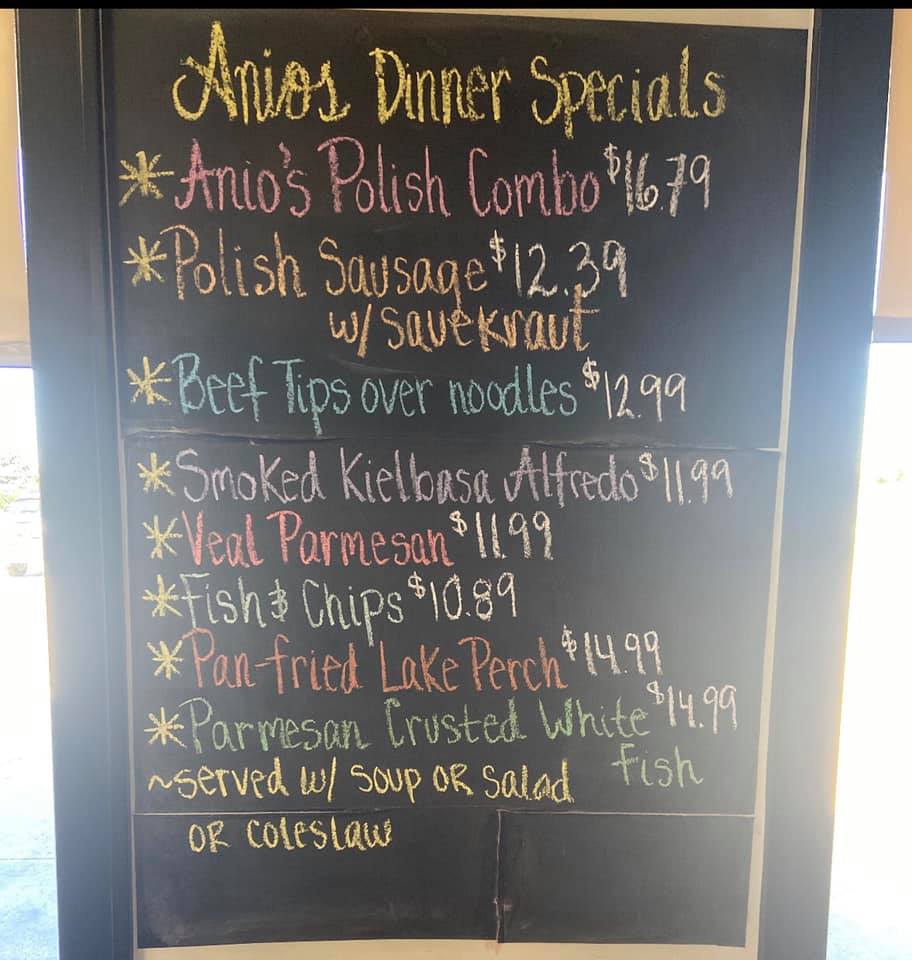 Anios Dinner Specials
* Anio's Polish Combo $16.79
* Polish Sausage $12.39
w/ sauekraut
* Beef Tips over noodles $12.99
* Smoked Kielbasa Alfredo $11.99
* Veal Parmesan $11.99
* Fish & Chips $10.89
* Pan-fried Lake Perch $14.99
* Parmesan Crusted White $14.99
fish
~served w/ soup or salad
or coleslaw